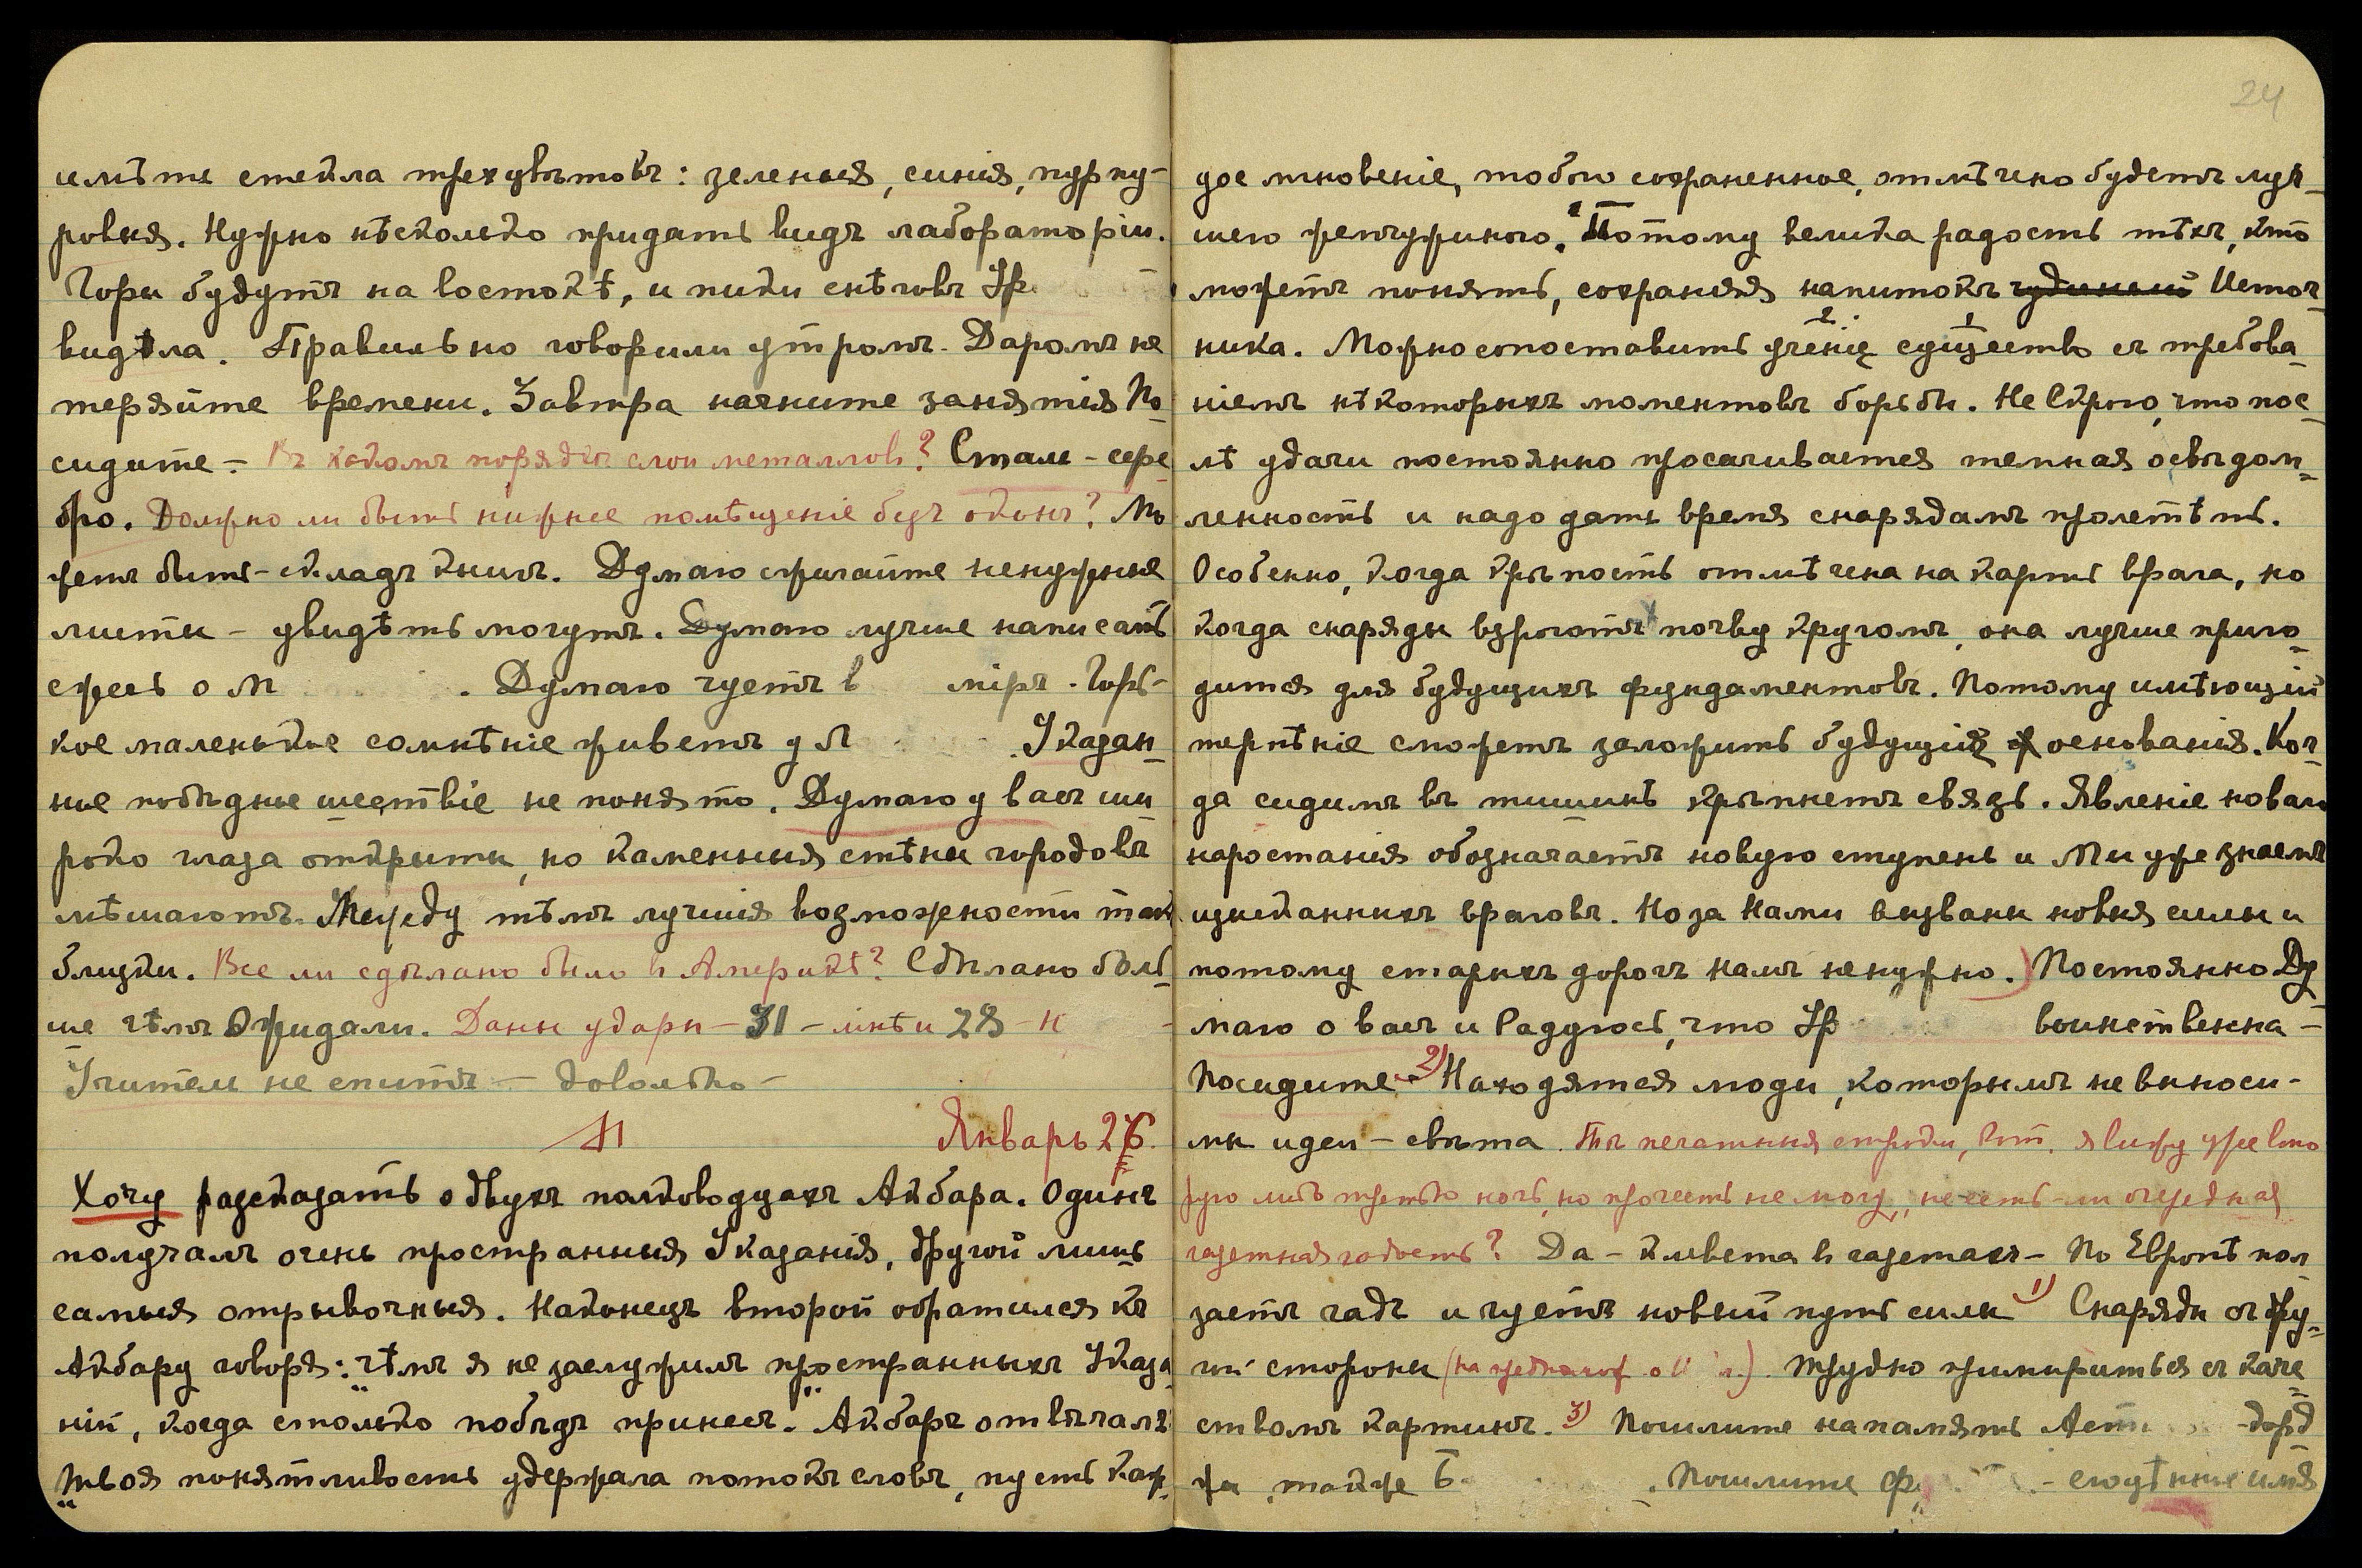 имѣть стекла трехцвѣтовъ: зеленыя, синія, пурпу-
ровыя. Нужно нѣсколько придать видъ лабораторіи.
Горы будутъ на востокѣ, и пики снѣговъ Ур
видѣла. Правильно говорили утромъ. Даромъ не
теряйте времени. Завтра начните занятія По-
сидите – Въ какомъ порядкѣ слои металловъ? Сталь – сере-
бро. Должно ли быть нижнее помѣщеніе безъ оконъ? Мо
жетъ быть – складъ книгъ. Думаю сжигайте ненужные
листы – увидѣть могутъ. Думаю лучше написать
сжечь о М . Думаю чуетъ в міръ. Горь-
кое маленькое сомнѣніе живетъ у Л . Указан-
ные побѣдные шествіе не понято. Думаю у васъ ши
роко глаза открыты, но каменныя стѣны городовъ
мѣшаютъ. Между тѣмъ лучшія возможности так
близки. Все ли сдѣлано было в Америкѣ? Сдѣлано боль-
ше чѣмъ Ожидали. Даны удары – 31 – и 28 – н
Учитель не спитъ – довольно –
Январь 26.
Хочу разсказать о двухъ полководцахъ Акбара. Одинъ
получалъ очень пространныя Указанія, другой лишь
самыя отрывочныя. Наконецъ второй обратился къ
Акбару говоря: „чѣмъ я не заслужилъ пространныхъ Указа
ній, когда столько побѣдъ принесъ." Акбаръ отвѣчалъ:
„Твоя понятливость удержала потокъ словъ, пусть каж-
24
дое мгновеніе, тобою сохраненное, отмѣчено будетъ луч-
шею жемчужиною." Потому велика радость тѣхъ, кто
можетъ понять, сохраняя напитокъ Источ-
ника. Можно сопоставить ученіе существ съ требова-
ніемъ нѣкоторыхъ моментовъ борьбы. Не Скрою, что пос-
лѣ удачи постоянно просачивается темная освѣдом-
ленность и надо дать время снарядамъ пролетѣть.
Особенно, когда крѣпость отмѣчена на картѣ врага, но
когда снаряды взроютъ почву кругомъ, она лучше приго-
дится для будущихъ фундаментовъ. Потому имѣющій
терпѣніе сможетъ заложить будущія основанія. Ког-
да сидимъ въ тишинѣ крѣпнетъ связь. Явленіе новаго
наростанія обозначаетъ новую ступень и Мы уже знаемъ
изысканныхъ враговъ. Но за Нами вызваны новыя силы и
потому старыхъ дорогъ намъ ненужно.) Постоянно Ду
маю о васъ и Радуюсь, что Ур воинственна –
Посидите – 2) Находятся люди, которымъ не выноси-
мы идеи – свѣта. Тѣ печатныя строки, я вижу уже вто
рую иль третью ночь, но прочесть не могу, не есть-ли очередная
газетная гадость? Да – клевета в газетахъ – По Европѣ пол
заетъ гадъ и чуетъ новый путь силы 1) Снаряды съ дру-
гой стороны Трудно примириться съ каче-
ствомъ картинъ. 3) Пошлите на память Аст
также Б . Пошлите Ф. – имя